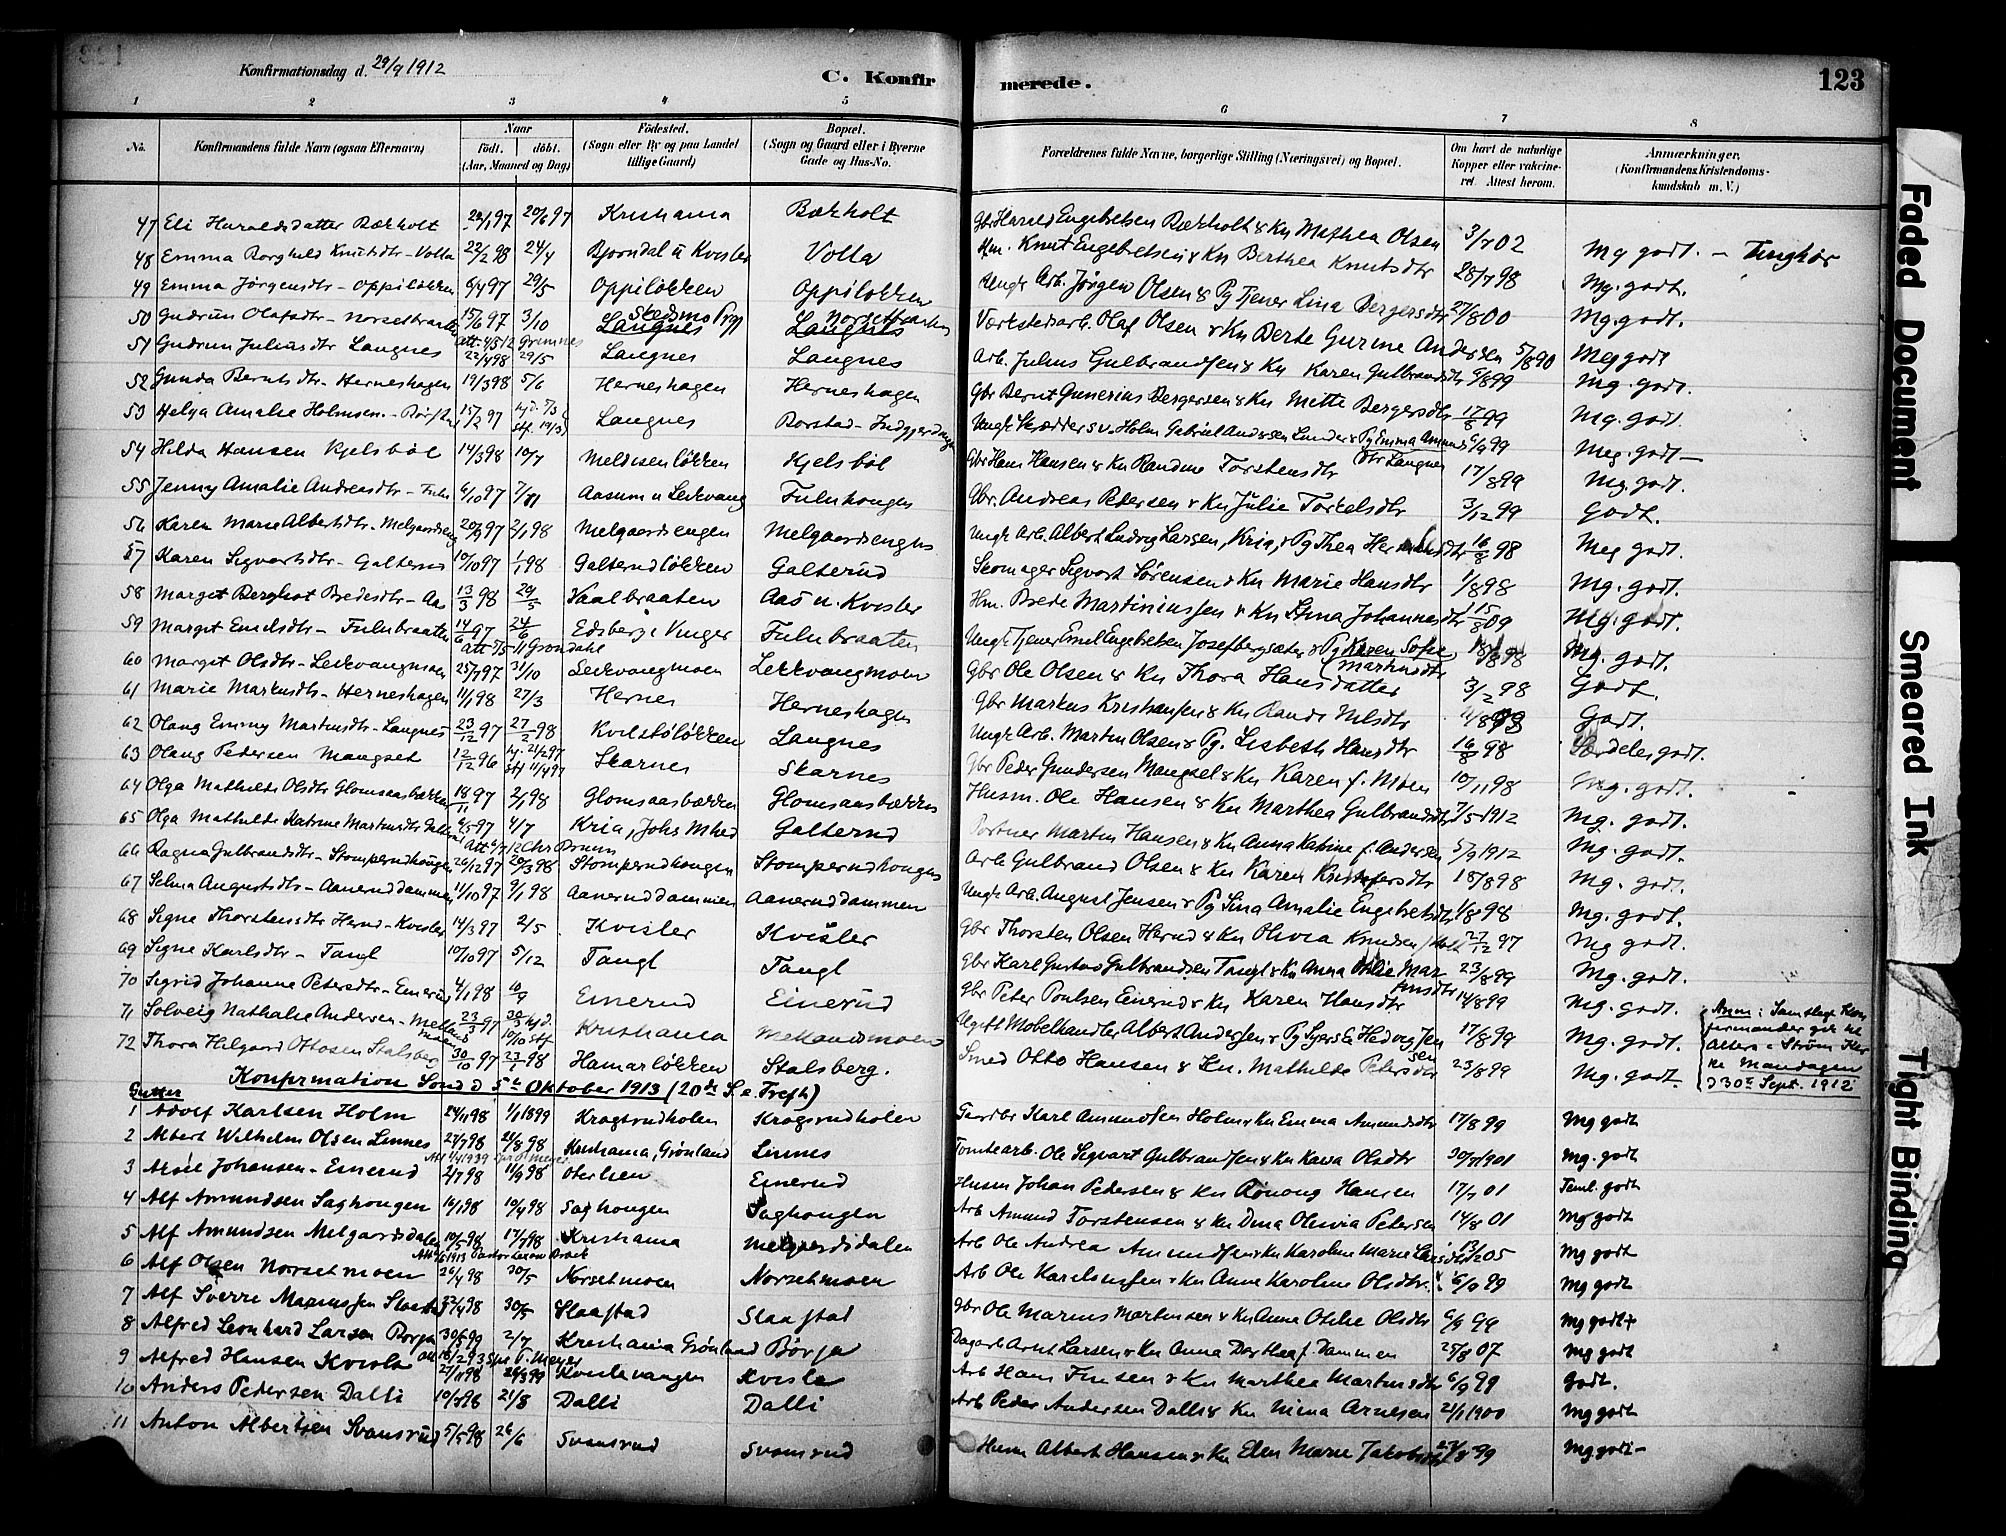 Konfirmationsdag d. 29/9 1912
C. Konfirmerede.
123
1 2 3 4 5 6 7 8
No.
Konfirmandens fulde Navn (ogsaa Efternavn)
Naar
født. døbt.
(Aar, Maaned og Dag)
Fødested.
(Sogn eller By og paa Landet tillige Gaard)
Bopæl.
(Sogn og Gaard eller i Byerne Gade og Hus-No.
Forældrenes fulde Navne, borgerlige Stilling (Næringsvei) og Bopæl.
Om havt de naturlige Kopper eller vakcineret. Attest herom.
Anmærkninger.
(Konfirmandens Kristendomskundskab m. V.)
47 Eli Haraldsdatter Bækholt 20/6 97 Kristiania Bækholt Gbr Harald Engebretsen Bækholt & Kn Mathea Olsen
48 Emma Borghild Knutsdtr - Volla 22/2 98 24/4 Bjørndal u Kvisler Volla Hm. Knut Engebretsen & Kn Berthea Knutsdtr Mg godt.
49 Emma Jørgensdtr - Oppiløkken 6/4 97 29/5 Oppiløkken Oppiløkken Ungk Arb. Jørgen Olsen & Pg Tjener Lina Bergersdtr 27/8 00 Mg. godt.
50 Gudrun Olafsdtr - Norsetbraaten 15/6 97 3/10 Skedsmo Prgj Værkstedsarb. Olaf Olsen & Kn Berte Gurine Andersen Mg. godt.
51 Gudrun Juliusdtr Langnes 22/4 98 29/5 Langnes Langnes Arb. Julius Gulbrandsen & Kn Karen Gulbrandsdtr Meg godt
52 Gunda Berntsdtr - Herneshagen 19/3 98 5/6 Herneshagen Herneshagen Gbr Bernt Gunerius Bergersen & Kn Mette Bergersdtr 17/8 99 Mg. godt.
53 Helga Amalie Holmsen 15/2 97 Langnes Rorstad Mg. godt.
54 Hilda Hansen Kjelsbøl 14/3 98 10/7 Kjelsbøl Gbr Hans Hansen & Kn Randine Torstensdtr 17/8 99 Meg. godt
55 Jenny Amalie Andreasdtr 6/10 97 Aasum u Leirvang Gbr. Andreas Pedersen & Kn Julie Torkelsdtr 3/12 99 Godt.
56 Karen Marie Albertsdtr - Melgaardseng 20/9 97 2/1 98 Melgaardsengen Melgaardsengen Ungk Arb. Albert Ludvig Larsen, Kria, & Pg Thea 16/8 98 Meg godt.
57 Karen Sigvartsdtr - Galterud 10/10 97 1/1 98 Galterudløkken Galterud Skomager Sigvart Sørensen & Kn Marie Hansdtr 1/8 98 Mg. godt.
58 Margit Bergliot Bredesdtr - Aas 13/3 98 29/5 Vaalbraaten Aas u. Kvisler Hm. Brede Martiniussen & Kn Stina Johannesdtr 15/8 09 Mg. godt.
59 Margit Emilsdtr - Fulubraaten 14/6 97 24/6 Edsberg i Vinger Fulubraaten Ungk Tjener Emil Engebretsen Josefbergsæter & Pg Karen Sofie Martinsdtr Mg. godt.
60 Margit Olsdtr - Leirvangmoen 25/7 97 31/10 Leirvangmoen Leirvangmoen Gbr Ole Olsen & Kn Thora Hansdatter 3/2 98 Godt.
61 Marie Markusdtr - Herneshagen 11/1 98 27/3 Hernes Herneshagen Gbr Markus Kristiansen & Kn Randi Nilsdtr Godt.
62 Olaug Emmy Martinsdtr - Langnes 23/12 97 27/2 98 Kvilstøløkken Langnes Ungk Arb. Martin Olsen & Pg. Lisbeth Hansdtr 16/8 98 Særdeles godt.
63 Olaug Pedersen Mangset 12/12 96 Skarnes Skarnes Gbr Peder Gundersen Mangset & Kn Karen f. Moen 10/11 98 Mg. godt.
64 Olga Mathilde Olsdtr Glomsaasbækken 18/11 97 2/1 98 Glomsaasbækken Glomsaasbækken Husm. Ole Hansen & Kn Marthea Gulbrandsdtr 7/5 1912 Mg. godt.
65 Olga Mathilde Katrine Martinsdtr 4/7 Kria, Johs Mhed Galterud Portner Martin Hansen & Kn Anna Katrine f. Andersen 5/9 1912 Mg. godt.
66 Ragna Gulbrandsdtr - Stomperudhougen 26/12 97 20/3 98 Stomperudhougen Stomperudhougen Arb Gulbrand Olsen & Kn Karen Kristofersdtr 18/8 98 Mg. godt.
67 Selma Augustsdtr - Aanerud dammen 11/10 97 9/1 98 Aaneruddammen Aaneruddammen Ungk Arb. August Jensen & Pg Lina Amalie Engebretsdtr 1/8 98 Mg. godt.
68 Signe Thorstensdtr Herud - Kvisler 14/3 97 2/5 Kvisler Kvisler Gbr Thorsten Olsen Herud & Kn Olivia Knudsen 27/12 97 Mg godt.
69 Signe Karlsdtr - Tangl 10/10 97 5/12 Tangl Tangl Gbr Karl Gustav Gulbrandsen Tangl & Kn Anna Othilie Martinsdtr 23/8 99 Mg. godt.
70 Sigrid Johanne Petersdtr - Einerud 4/1 98 Einerud Einerud Gbr Peter Poulsen Einerud & Kn Karen Hansdtr 14/8 99 Mg. godt.
71 Solveig Nathalie Andersen 23/3 97 Kristiania Ugift Møbelhandler Albert Andersen & Pg Syerske Hedvig Jensen 17/8 99 Mg. godt.
72 Thora Helgaard Ottosen Stalsberg 30/10 97 23/1 98 Hamarløkken Stalsberg. Smed Otto Hansen & Kn. Mathilde Petersdtr 23/8 99 Mg. godt
Anm: Samtlige Konfirmander gik til Alters i Strøm Kirke Mandagen d 30te Sept. 1912
Konfirmation Sønd d 5te Oktober 1913 (20de S. e. Trefh)
Gutter
1 Adolf Karlsen Holm 24/11 98 1/1 1899 Kragsrudholen Kragsrudholen Gaardbr Karl Amundsen Holm & Kn Emma Amundsdtr 17/8 99 Mg godt
2 Albert Wilhelm Olsen Linnes 27/7 98 21/8 98 Kristiania, Grønland Linnes Tomtearb. Ole Sigvart Gulbrandsen & Kn Kaia Olsdtr Mg. godt
3 Johansen - Einerud 2/7 98 11/9 98 Einerud Husm Johan Pedersen & Kn Rønoug Hansen 17/7 01 Teml. godt
4 Alf Amundsen Saghougen 16/1 98 10/4 98 Saghougen Saghougen Arb Amund Torstensen & Kn Dina Olivia Petersen 14/8 01 Mg godt
5 Alf Amundsen Melgaardsdalen 10/5 98 17/7 98 Kristiania Melgaardsdalen Arb Ole Andreas Amundsen & Kn Karoline Marie Larsdtr 13/12 05 Mg godt
6 Alf Olsen Norsetmoen 26/4 98 30/5 Norsetmoen Norsetmoen Arb Ole Karelinssen & Kn Anne Karoline Olsdtr 6/9 99 Mg godt
7 Alf Sverre Mariussen 30/5 Slaastad Slaastad Gbr Ole Marius Martinsen & Kn Anne Othilie Olsdtr 6/9 99 Mg godt
8 Alfred Leonhard Larsen Børja 2/7 Kristiania Grønland Børja Dagarb Arnt Larsen & Kn Anna Dorthea f. Dammen 25/8 07 Mg godt
9 Alfred Hansen Kvisla 27/11 98 26/3 99 Kvislevangen Kvisla Arb Hans Finsen & Kn Marthea Martinsdtr 6/9 99 Godt.
10 Anders Pedersen Dalli 10/7 98 21/8 Dalli Dalli Arb Peder Andersen Dalli & Kn Mina Arnesen 21/1 1900 Mg godt
11 Anton Albertsen Svansrud 5/5 98 26/6 Svansrud Svansrud Husm Albert Hansen & Kn Elen Marie Jakobsdtr 27/8 99 Mg godt
Faded Document
Smeared Ink
Tight Binding